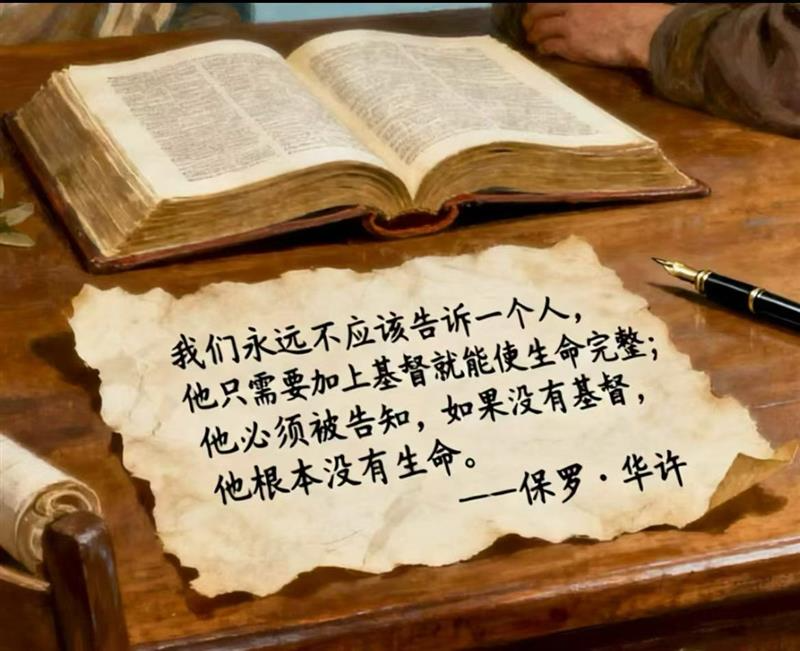 我们永远不应该告诉一个人，
他只需要加上基督就能使生命完整；
他必须被告知，如果没有基督，
他根本没有生命。
——保罗·华许